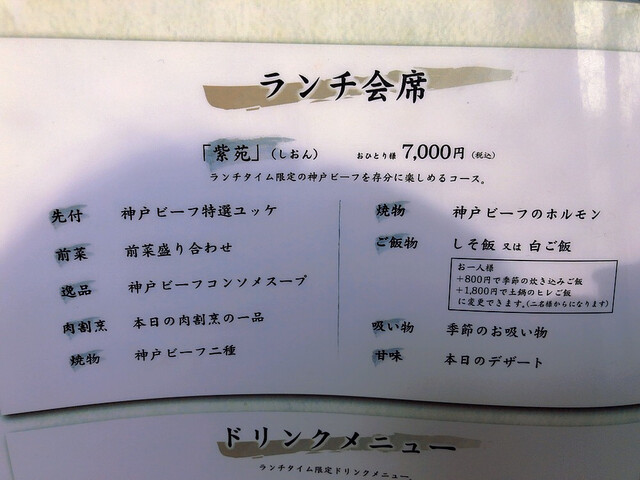 ランチ会席
「紫苑」(しおん) おひとり様 7,000円 (税込)
ランチタイム限定の神戸ビーフを存分に楽しめるコース。
先付 神戸ビーフ特選ユッケ
前菜 前菜盛り合わせ
逸品 神戸ビーフコンソメスープ
肉割烹 本日の肉割烹の一品
焼物 神戸ビーフ二種
焼物 神戸ビーフのホルモン
ご飯物 しそ飯 又は 白ご飯
お一人様
+800円で季節の炊き込みご飯
+1,800円で土鍋のヒレご飯
に変更できます。(二名様からになります)
吸い物 季節のお吸い物
甘味 本日のデザート
ドリンクメニュー
ランチタイム限定ドリンクメニュー。